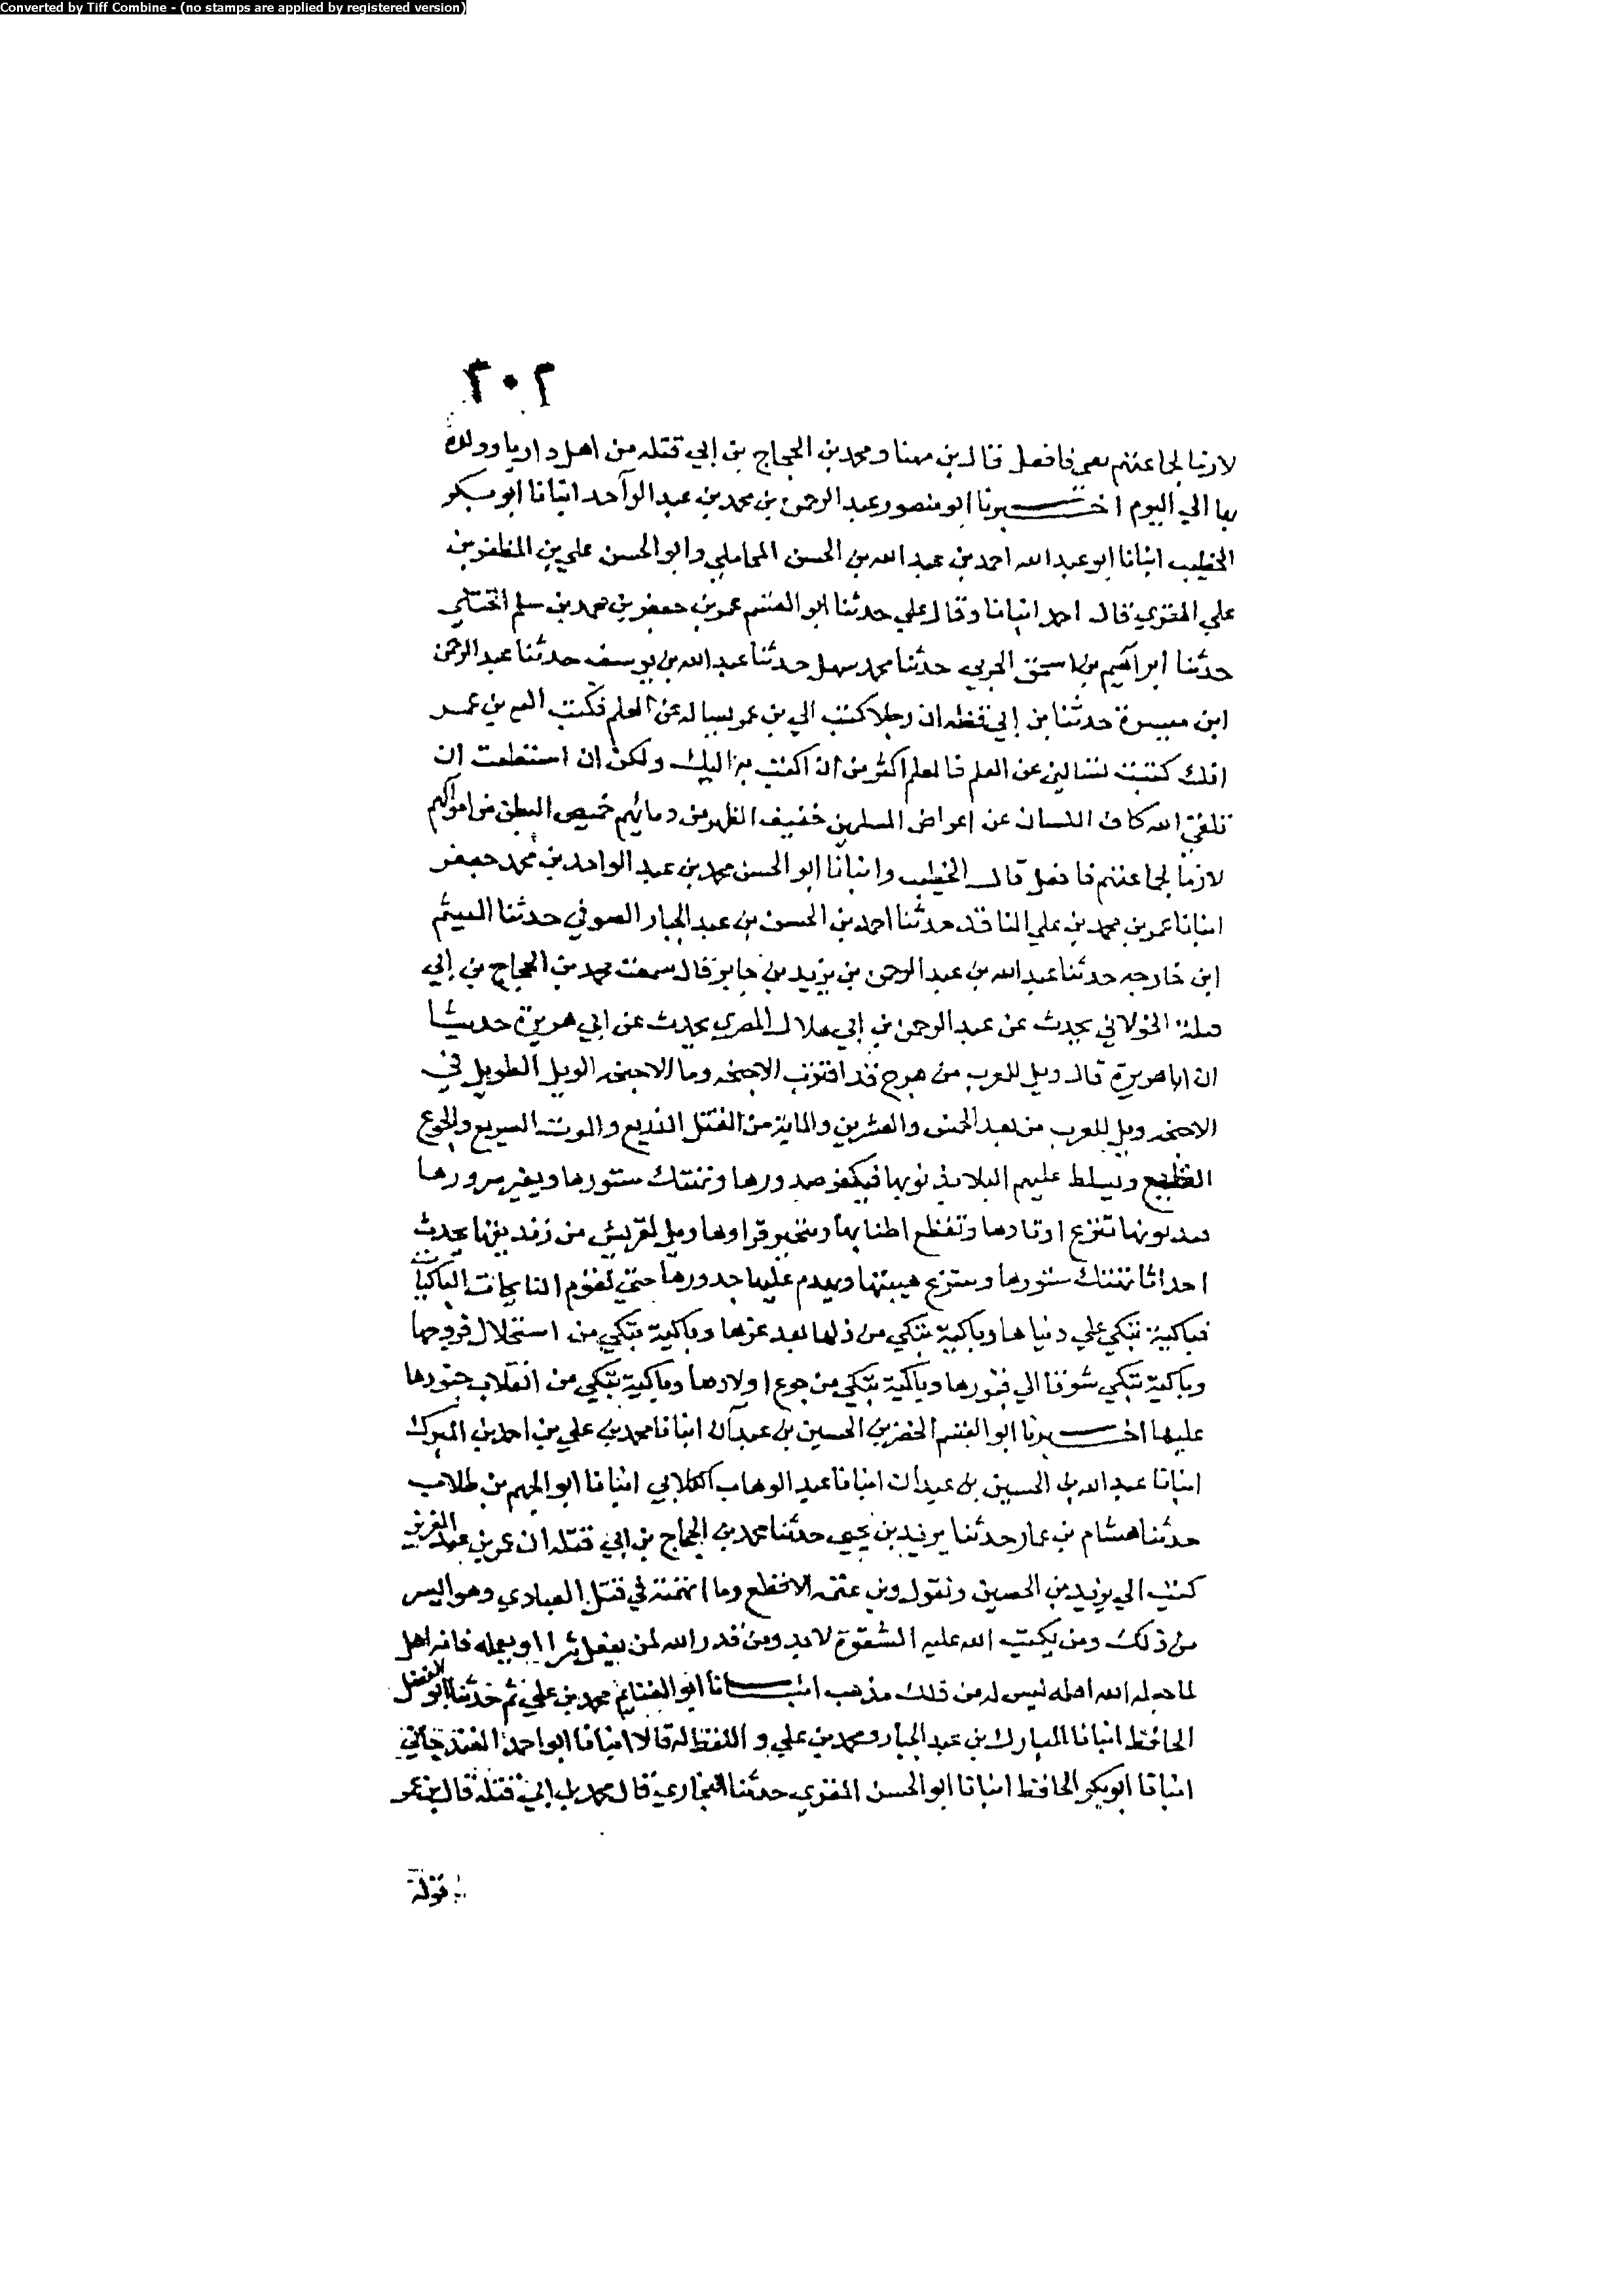 Converted by Tiff Combine - (no stamps are applied by registered version)
٣٠٢
لازما لجماعتهم فافعل قال بن مهنا ومحمد بن الحجاج بن ابي قتله من اهل داريا وولده
بها الي اليوم اخبرنا ابو منصور عبد الرحمن بن محمد بن عبد الواحد انبانا ابو بكر
الخطيب انبانا ابو عبد الله احمد بن عبد الله بن الحسن المحاملي وابو الحسن علي بن المظفر بن
علي المقري قال احمد انبانا وقال علي حدثنا ابو القسم عمر بن جعفر بن محمد بن سلم الختلي
حدثنا ابراهيم بن اسحق الحربي حدثنا محمد سهل حدثنا عبد الله بن يوسف حدثنا عبد الرحمن
ابن ميسرة حدثنا بن ابي قتله ان رجلا كتب الي بن عمر يساله عن العلم فكتب اليه بن عمر
انك كتبت تسالني عن العلم فالعلم اكثر من ان اكتب به اليك ولكن ان استطعت ان
تلقي الله كاف اللسان عن اعراض المسلمين خفيف الظهر من دمائهم خميص البطن من اموالهم
لازما لجماعتهم فافعل قال الخطيب وانبانا ابو الحسن محمد بن عبد الواحد بن محمد جعفر
انبانا عمر بن محمد بن علي الناقد حدثنا احمد بن الحسن بن عبد الجبار الصوفي حدثنا الهيثم
ابن خارجه حدثنا عبد الله بن عبد الرحمن بن يزيد بن جابر قال سمعت محمد بن الحجاج بن ابي
قتلة الخولاني يحدث عن عبد الرحمن بن ابي هلال المصري يحدث عن ابي هريرة حديثا
ان ابا هريرة قال ويل للعرب من هرج قد اقترب الاجنحه وما الاجنحه الويل الطويل في
الاجنحه ويل للعرب من بعد الخمس والعشرين والماية من القتل الذريع والموت السريع والجوع
الفظيع ويسلط عليهم البلا بذنوبها فيكفر صدورها وتهتك ستورها ويغير سرورها
بذنوبها تنزع اوتادها وتقطع اطنابها قراوها ويل لقريش من زنديقها يحدث
احداثا تهتك ستورها وينتزع هيبتها ويهدم عليها جدورها حتي تقوم النايحات الباكيات
فباكية تبكي علي دنياها وباكية تبكي من ذلها بعد عزها وباكية تبكي من استحلال فروجها
وباكية تبكي شوقا الي قبورها وباكية تبكي من جوع اولادها وباكية تبكي من انقلاب جنورها
عليها اخبرنا ابو القسم الخضر بن الحسين بن عبدان انبانا محمد بن علي بن احمد بن المبرك
انبانا عبد الله بن الحسين بن عبدان انبانا عبد الوهاب الكلابي انبانا ابو الجهم بن طلاب
حدثنا هشام بن عمار حدثنا يزيد بن يحيي حدثنا محمد بن الحجاج بن ابي قتله ان عمر بن عبد العزيز
كتب الي يزيد بن الحصين وتقول وبن عتمه الاقطع وما في قتل العبادي وهو اليس
من ذلك ومن يكتب الله عليه الشقوة لابد ومن قدر الله لمن يفعل شرا او يعمله فانه اهل
لما جعله الله اهله ليس له من ذلك مذهب انبانا ابو الغنايم محمد بن علي ثم حدثنا ابو الفضل
الحافظ انبانا المبارك بن عبد الجبار ومحمد بن علي واللفظ له قالا انبانا ابو احمد الغندجاني
انبانا ابو بكر الحافظ انبانا ابو الحسن المقري حدثنا البخاري قال محمد بن ابي قتلة قال بن عمر
قوله